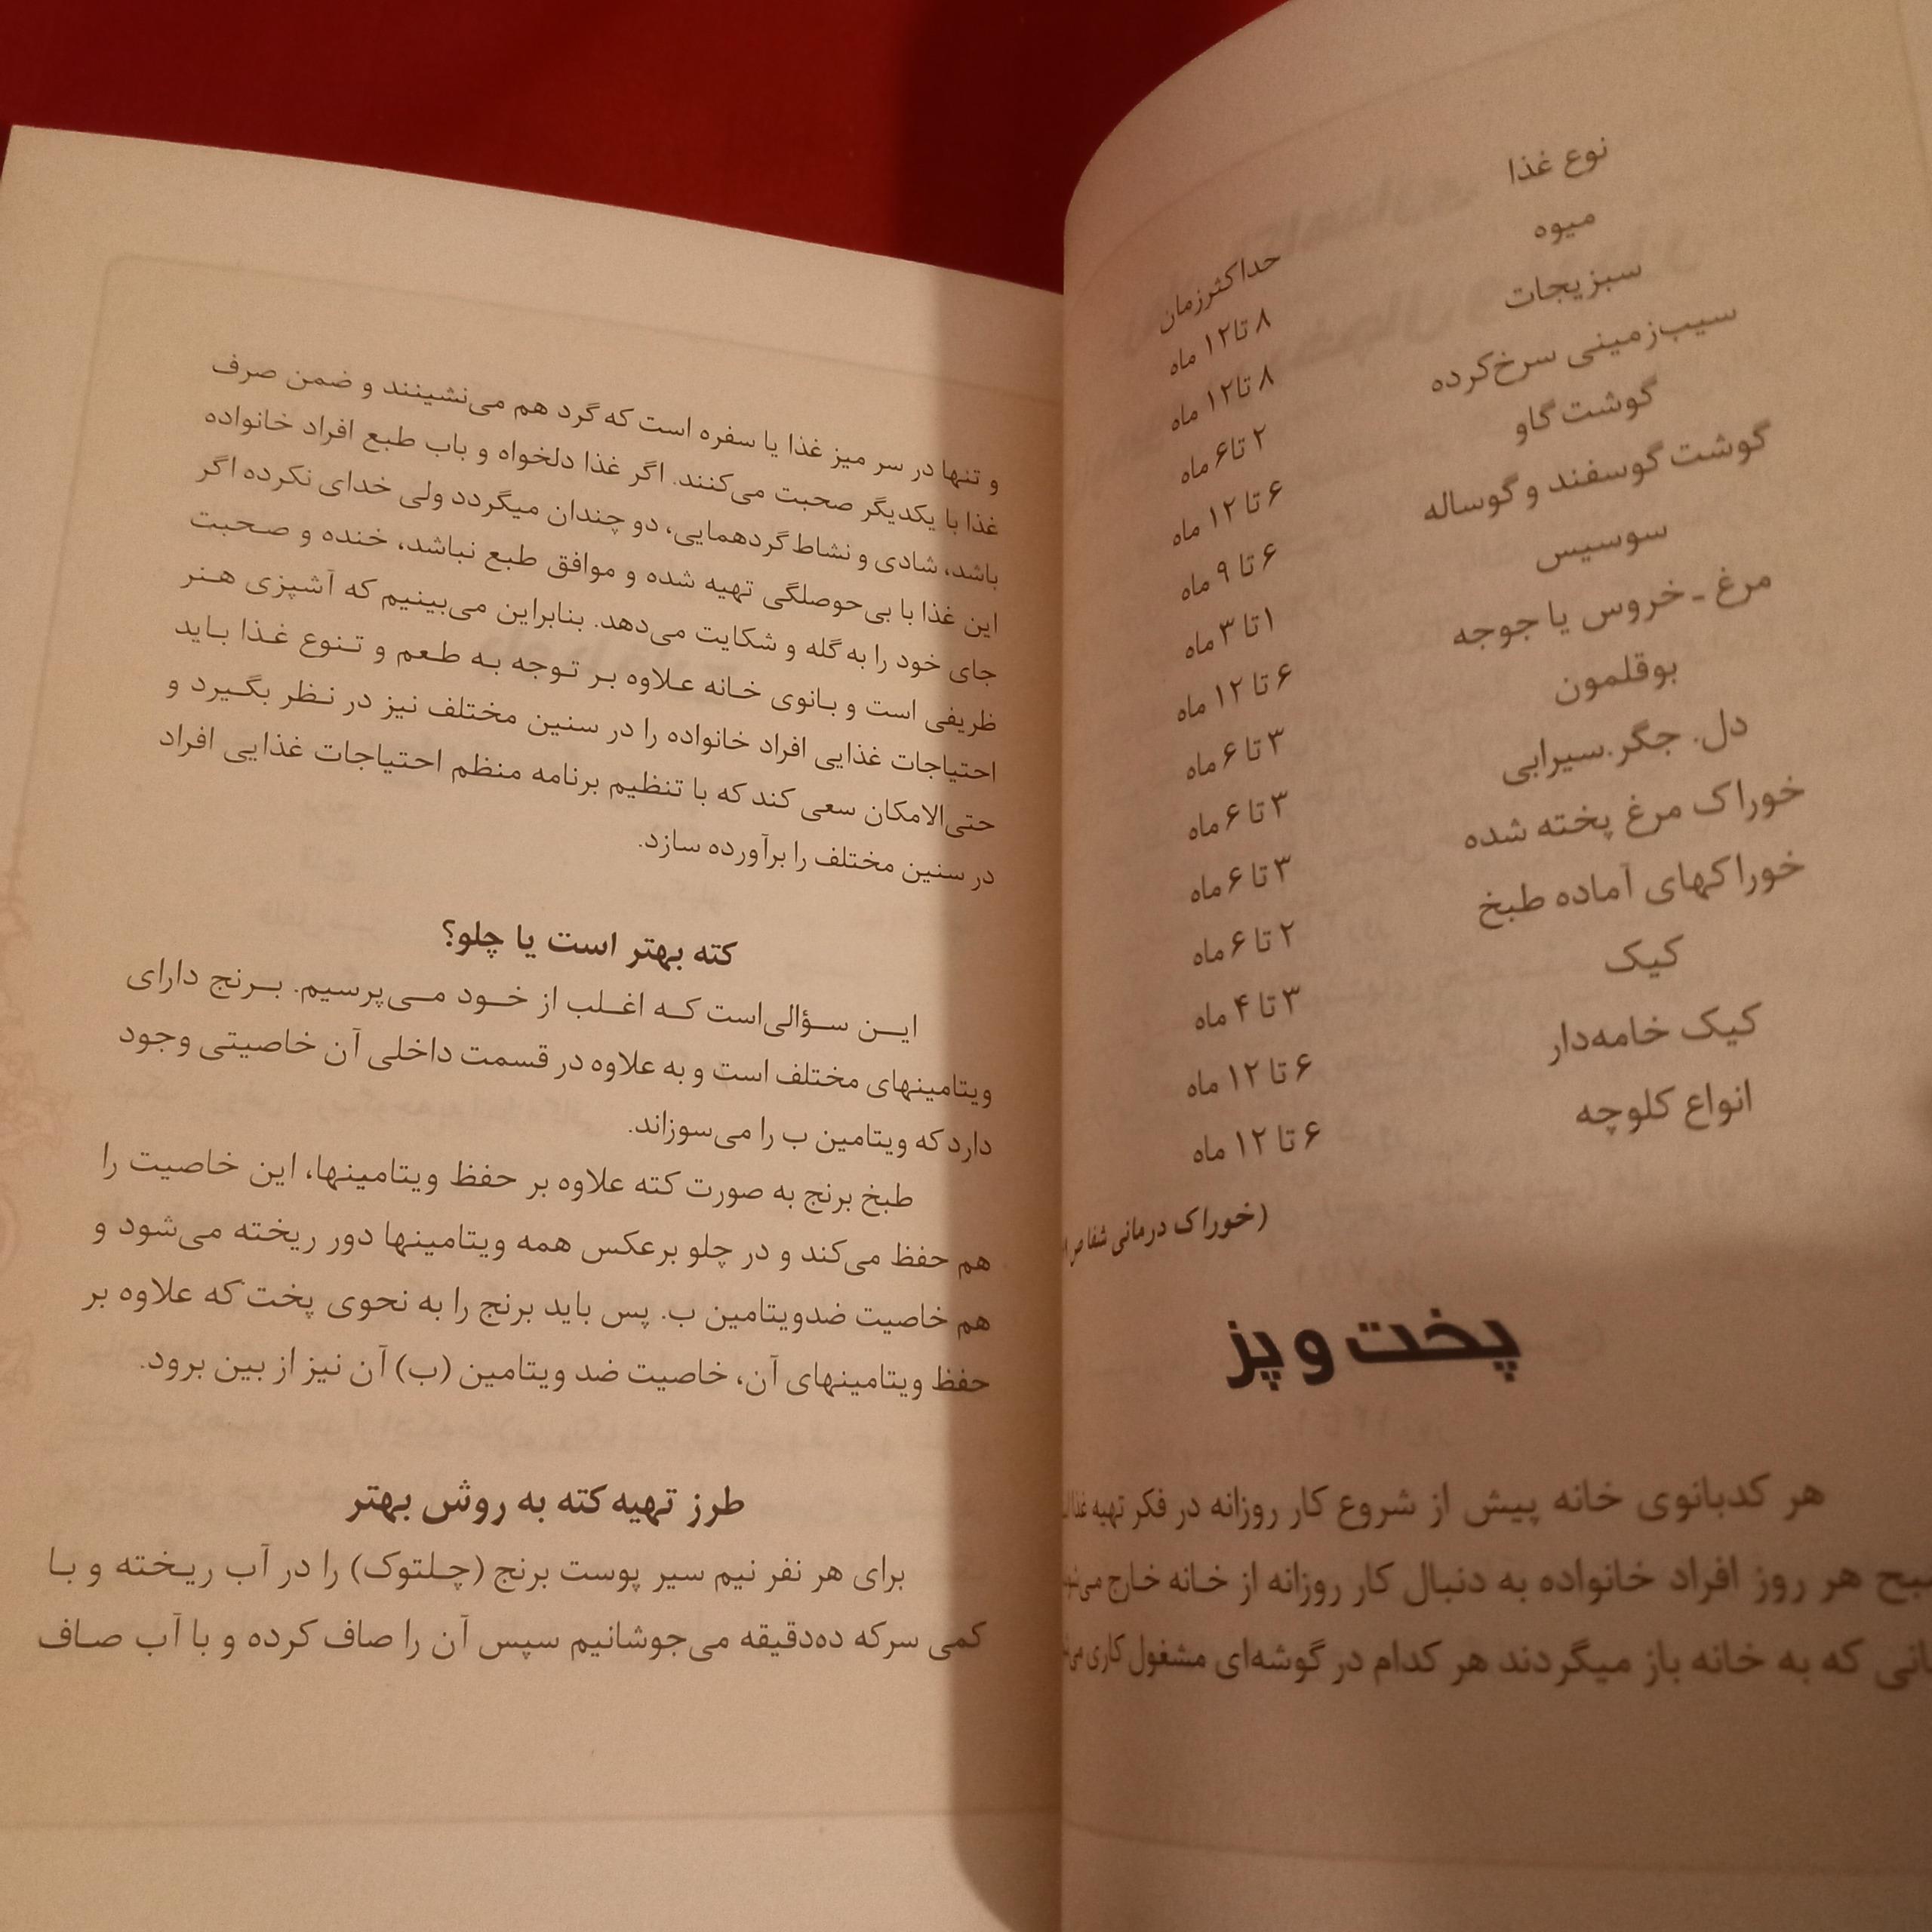 نوع غذا	حداکثرزمان
میوه	۸ تا۱۲ ماه
سبزیجات	۸ تا۱۲ ماه
سیب‌زمینی سرخ‌کرده	۲ تا۶ ماه
گوشت گاو	۶ تا ۱۲ ماه
گوشت گوسفند و گوساله	۶ تا ۹ ماه
سوسیس	۱تا ۳ ماه
مرغ ـ خروس یا جوجه	۶ تا ۱۲ ماه
بوقلمون	۳ تا ۶ ماه
دل. جگر.سیرابی	۳ تا ۶ ماه
خوراک مرغ پخته شده	۳ تا ۶ ماه
خوراکهای آماده طبخ	۲ تا ۶ ماه
کیک	۳ تا ۴ ماه
کیک خامه‌دار	۶ تا ۱۲ ماه
انواع کلوچه	۶ تا ۱۲ ماه
(خوراک درمانی شفا ص
پخت و پز
هر کدبانوی خانه پیش از شروع کار روزانه در فکر تهیه غذا
هر روز افراد خانواده به دنبال کار روزانه از خـانه خـارج
که به خانه باز میگردند هر کدام در گوشه‌ای مشغول کاری
و تنها در سر میز غذا یا سفره است که گرد هم می‌نشینند و ضمن صرف
غذا با یکدیگر صحبت می‌کنند. اگر غذا دلخواه و باب طبع افراد خانواده
باشد، شادی و نشاط گردهمایی، دو چندان میگردد ولی خدای نکرده اگر
این غذا با بی‌حوصلگی تهیه شده و موافق طبع نباشد، خنده و صحبت
جای خود را به گله و شکایت می‌دهد. بنابراین می‌بینیم که آشپزی هـنر
ظریفی است و بـانوی خـانه عـلاوه بـر تـوجه بـه طـعم و تـنوع غـذا بـاید
احتیاجات غذایی افراد خانواده را در سنین مختلف نیز در نـظر بگـیرد و
حتی‌الامکان سعی کند که با تنظیم برنامه منظم احتیاجات غذایی افراد
در سنین مختلف را برآورده سازد.
کته بهتر است یا چلو؟
ایـن سـؤالی‌است کـه اغـلب از خـود مـی‌پرسیم. بـرنج دارای
ویتامینهای مختلف است و به علاوه در قسمت داخلی آن خاصیتی وجود
دارد که ویتامین ب را می‌سوزاند.
طبخ برنج به صورت کته علاوه بر حفظ ویتامینها، این خاصیت را
هم حفظ می‌کند و در چلو برعکس همه ویتامینها دور ریخته می‌شود و
هم خاصیت ضدویتامین ب. پس باید برنج را به نحوی پخت که علاوه بر
حفظ ویتامینهای آن، خاصیت ضد ویتامین (ب) آن نیز از بین برود.
طرز تهیه کته به روش بهتر
برای هر نفر نیم سیر پوست برنج (چـلتوک) را در آب ریـخته و بـا
کمی سرکه ده‌دقیقه می‌جوشانیم سپس آن را صاف کرده و با آب صـاف